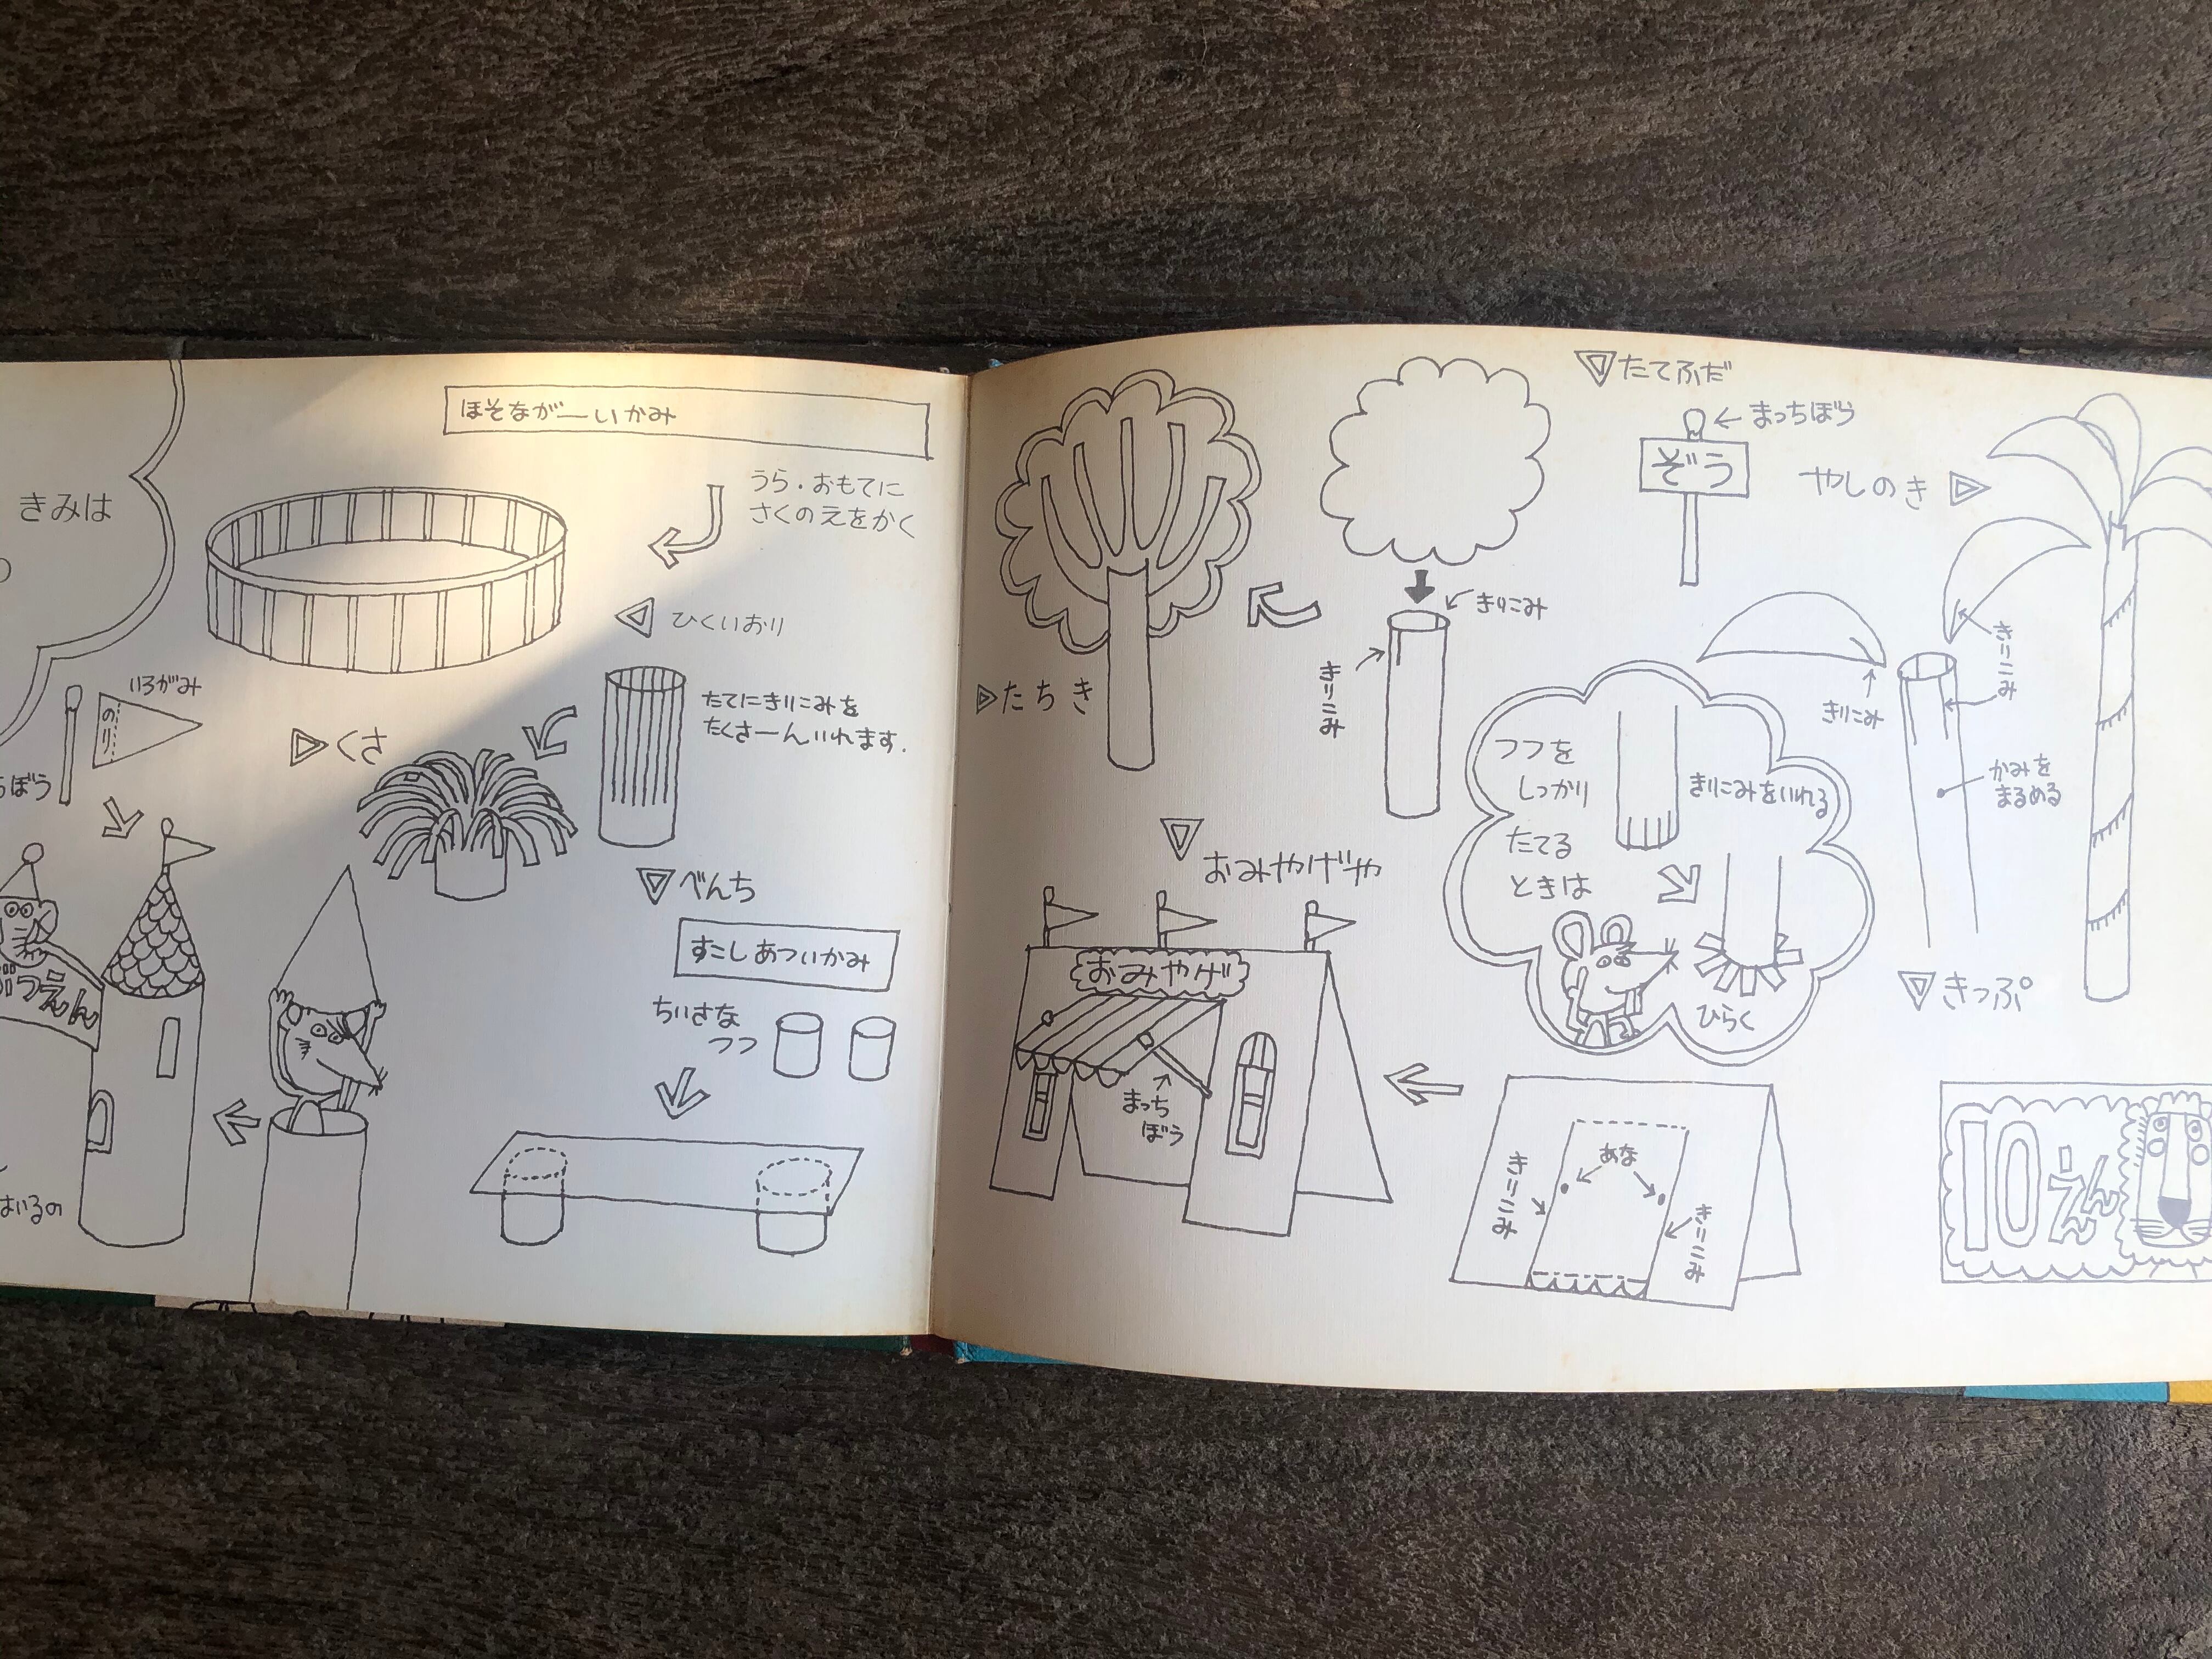 きみは
ほそながーいかみ
うら・おもてに
さくのえをかく
ひくいおり
いろがみ
のり
ぼう
くさ
たてにきりこみを
たくさーんいれます.
べんち
すこしあついかみ
ちいさな
つつ
つえん
はいるの
たちき
きりこみ
きりこみ
たてふだ
まっちぼう
ぞう
やしのき
きりこみ
きりこみ
かみを
まるめる
つつを
しっかり
たてる
ときは
きりこみをいれる
ひらく
おみやげや
おみやげ
まっち
ぼう
あな
きりこみ
きりこみ
きっぷ
10えん